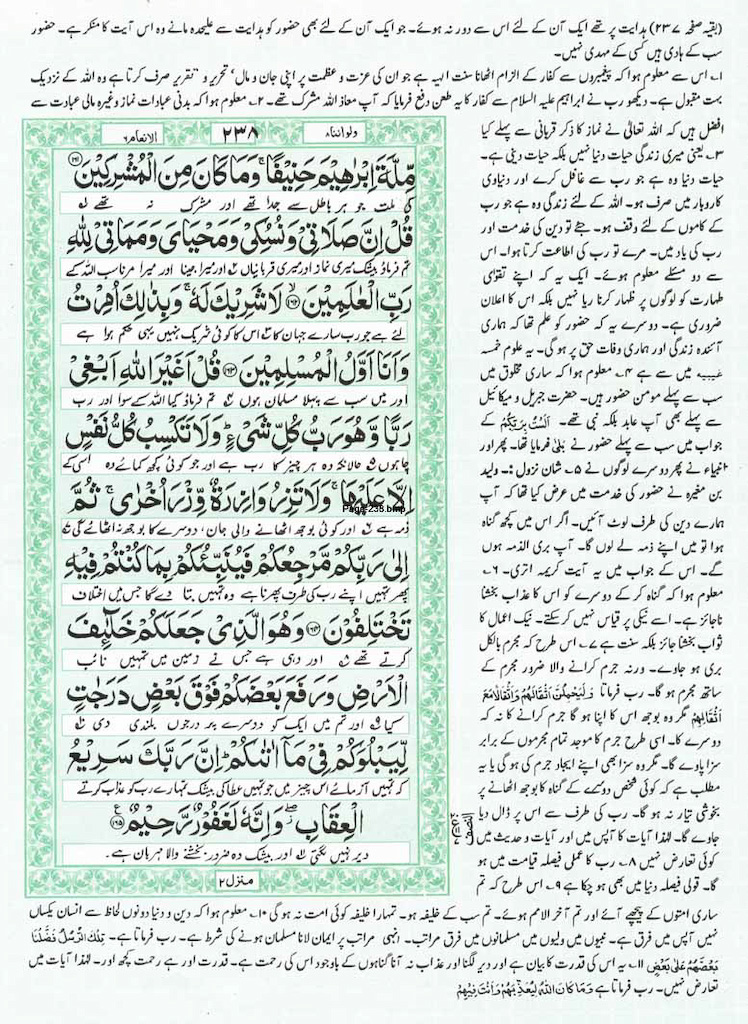 (بقیہ صفحہ ۲۳۷) ہدایت پر تھے ایک آن کے لئے اس سے دور نہ ہوئے۔ جو ایک آن کے لئے بھی حضور کو ہدایت سے علیحدہ مانے وہ اس آیت کا منکر ہے۔ حضور
سب کے ہادی ہیں کسی کے مہدی نہیں۔
۱۔ اس سے معلوم ہوا کہ پیغمبروں سے کفار کے الزام اٹھانا سنت الہیہ ہے جو ان کی عزت و عظمت پر اپنی جان و مال' تحریر و تقریر صرف کرتا ہے وہ اللہ کے نزدیک
بہت مقبول ہے۔ دیکھو رب نے ابراہیم علیہ السلام سے کفار کا یہ طعن دفع فرمایا کہ آپ معاذ اللہ مشرک تھے۔ ۲۔ معلوم ہوا کہ بدنی عبادات نماز وغیرہ مالی عبادت سے
ولواننا۸ ۲۳۸ الانعام۶
مِّلَّةَ اِبْرٰهِيْمَ حَنِيْفًا ۚ وَمَا كَانَ مِنَ الْمُشْرِكِيْنَ ﴿۱۶۱﴾
کی ملت جو ہر باطل سے جدا تھے اور مشرک نہ تھے
قُلْ اِنَّ صَلَاتِىْ وَنُسُكِىْ وَمَحْيَاىَ وَمَمَاتِىْ لِلّٰهِ
تم فرماؤ بیشک میری نماز اور میری قربانیاں اور میرا جینا اور میرا مرنا سب اللہ کے
رَبِّ الْعٰلَمِيْنَ ﴿۱۶۲﴾ لَا شَرِيْكَ لَهٗ ۚ وَبِذٰلِكَ اُمِرْتُ
لئے ہے جو رب سارے جہان کا اس کا کوئی شریک نہیں یہی حکم ہوا ہے
وَاَنَا اَوَّلُ الْمُسْلِمِيْنَ ﴿۱۶۳﴾ قُلْ اَغَيْرَ اللّٰهِ اَبْغِىْ
اور میں سب سے پہلا مسلمان ہوں تم فرماؤ کیا اللہ کے سوا اور رب
رَبًّا وَّهُوَ رَبُّ كُلِّ شَىْءٍ ؕ وَلَا تَكْسِبُ كُلُّ نَفْسٍ
چاہوں حالانکہ وہ ہر چیز کا رب ہے اور جو کوئی کچھ کمائے وہ اسی کے
اِلَّا عَلَيْهَا ۚ وَلَا تَزِرُ وَازِرَةٌ وِّزْرَ اُخْرٰى ۚ ثُمَّ
Page-238.bmp
ذمہ ہے اور کوئی بوجھ اٹھانے والی جان، دوسرے کا بوجھ نہ اٹھائے گی
اِلٰى رَبِّكُمْ مَّرْجِعُكُمْ فَيُنَبِّئُكُمْ بِمَا كُنْتُمْ فِيْهِ
پھر تمہیں اپنے رب کی طرف پھرنا ہے وہ تمہیں بتا دے گا جس میں اختلاف
تَخْتَلِفُوْنَ ﴿۱۶۴﴾ وَهُوَ الَّذِىْ جَعَلَكُمْ خَلٰٓئِفَ
کرتے تھے اور وہی ہے جس نے زمین میں تمہیں نائب
الْاَرْضِ وَرَفَعَ بَعْضَكُمْ فَوْقَ بَعْضٍ دَرَجٰتٍ
کیا اور تم میں ایک کو دوسرے پر درجوں بلندی دی
لِّيَبْلُوَكُمْ فِىْ مَاۤ اٰتٰٮكُمْ ؕ اِنَّ رَبَّكَ سَرِيْعُ
کہ تمہیں آزمائے اس چیز میں جو تمہیں عطا کی بیشک تمہارے رب کو عذاب کرتے
الْعِقَابِ ۖ وَاِنَّهٗ لَغَفُوْرٌ رَّحِيْمٌ ﴿۱۶۵﴾
دیر نہیں لگتی اور بیشک وہ ضرور بخشنے والا مہربان ہے۔
منزل۲
افضل ہیں کہ اللہ تعالیٰ نے نماز کا ذکر قربانی سے پہلے کیا
۳۔ یعنی میری زندگی حیات دنیا نہیں بلکہ حیات دینی ہے۔
حیات دنیا وہ ہے جو رب سے غافل کرے اور دنیاوی
کاروبار میں صرف ہو۔ اللہ کے لئے زندگی وہ ہے جو رب
کے کاموں کے لئے وقف ہو۔ جئے تو دین کی خدمت اور
رب کی یاد میں۔ مرے تو رب کی اطاعت کرتا ہوا۔ اس
سے دو مسئلے معلوم ہوئے۔ ایک یہ کہ اپنے تقویٰ
طہارت کو لوگوں پر ظہار کرنا ریا نہیں بلکہ اس کا اعلان
ضروری ہے۔ دوسرے یہ کہ حضور کو علم تھا کہ ہماری
آئندہ زندگی اور ہماری وفات حق پر ہو گی۔ یہ علوم خمسہ
غیبیہ میں سے ہے ۴۔ معلوم ہوا کہ ساری مخلوق میں
سب سے پہلے مومن حضور ہیں۔ حضرت جبریل و میکائیل
سے پہلے بھی آپ عابد بلکہ نبی تھے۔ اَلَسْتُ بِرَبِّكُمْ کے
جواب میں سب سے پہلے حضور نے بَلٰی فرمایا تھا۔ پھر اور
انبیاء نے پھر دوسرے لوگوں نے ۵۔ شان نزول :۔ ولید
بن مغیرہ نے حضور کی خدمت میں عرض کیا تھا کہ آپ
ہمارے دین کی طرف لوٹ آئیں۔ اگر اس میں کچھ گناہ
ہوا تو میں اپنے ذمہ لے لوں گا۔ آپ بری الذمہ ہوں
گے۔ اس کے جواب میں یہ آیت کریمہ اتری۔ ۶۔
معلوم ہوا کہ گناہ کر کے دوسرے کو اس کا عذاب بخشنا
ناجائز ہے۔ اسے نیکی پر قیاس نہیں کر سکتے۔ نیک اعمال کا
ثواب بخشنا جائز بلکہ سنت ہے ۷۔ اس طرح کہ مجرم بالکل
بری ہو جاوے۔ ورنہ جرم کرانے والا ضرور مجرم کے
ساتھ مجرم ہو گا۔ رب فرماتا وَلَيَحْمِلُنَّ اَثْقَالَهُمْ وَاَثْقَالًا مَّعَ
اَثْقَالِهِمْ مگر وہ بوجھ اس کا اپنا ہو گا جرم کرانے کا نہ کہ
دوسرے کا۔ اسی طرح جرم کا موجد تمام مجرموں کے برابر
سزا پاوے گا۔ مگر وہ سزا بھی اپنے ایجاد جرم کی ہو گی یا یہ
مطلب ہے کہ کوئی شخص دوسرے کے گناہ کا بوجھ اٹھانے پر
بخوشی تیار نہ ہو گا۔ رب کی طرف سے اس پر ڈال دیا
جاوے گا۔ لہٰذا آیات کا آپس میں اور آیات و حدیث میں
کوئی تعارض نہیں ۸۔ رب کا عملی فیصلہ قیامت میں ہو
گا۔ قولی فیصلہ دنیا میں بھی ہو چکا ہے ۹۔ اس طرح کہ تم
ساری امتوں کے پیچھے آئے اور تم آخر الامم ہوئے۔ تم سب کے خلیفہ ہو۔ تمہارا خلیفہ کوئی امت نہ ہو گی ۱۰۔ معلوم ہوا کہ دین و دنیا دونوں لحاظ سے انسان یکساں
نہیں آپس میں فرق ہے۔ نبیوں میں ولیوں میں مسلمانوں میں فرق مراتب۔ انہی مراتب پر ایمان لانا مسلمان ہونے کی شرط ہے۔ رب فرماتا ہے۔ تِلْكَ الرُّسُلُ فَضَّلْنَا
بَعْضَهُمْ عَلٰى بَعْضٍ ۱۱۔ یہ اس کی قدرت کا بیان ہے اور دیر لگنا اور عذاب نہ آنا گناہوں کے باوجود اس کی رحمت ہے۔ قدرت اور ہے رحمت کچھ اور۔ لہٰذا آیات میں
تعارض نہیں۔ رب فرماتا ہے وَمَا كَانَ اللّٰهُ لِيُعَذِّبَهُمْ وَاَنْتَ فِيْهِمْ